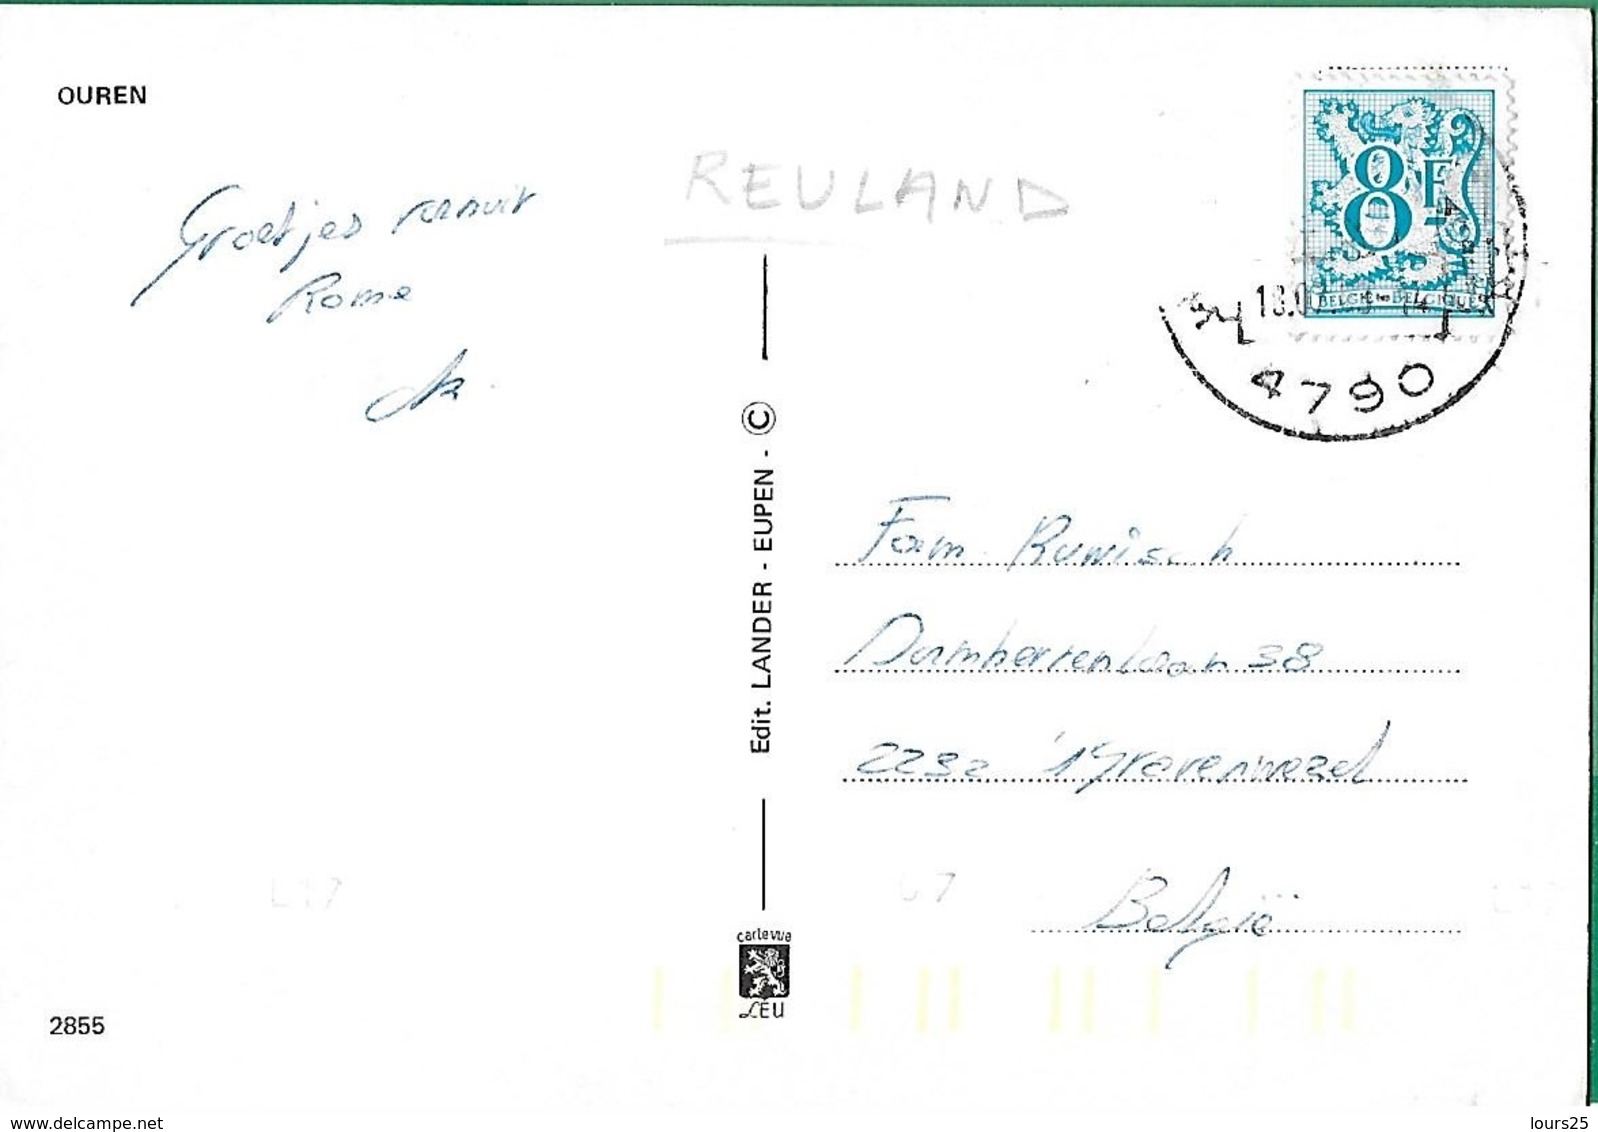 OUREN
REULAND
Groetjes vanuit
Rome
8F
BELGIË BELGIQUE
18.0
4790
Edit. LANDER - EUPEN - ©
Fam Ruwisch
Damherrenlaan 38
2232 's Gravenwezel
België
carte vue
LEU
2855
www.delcampe.net
lours25